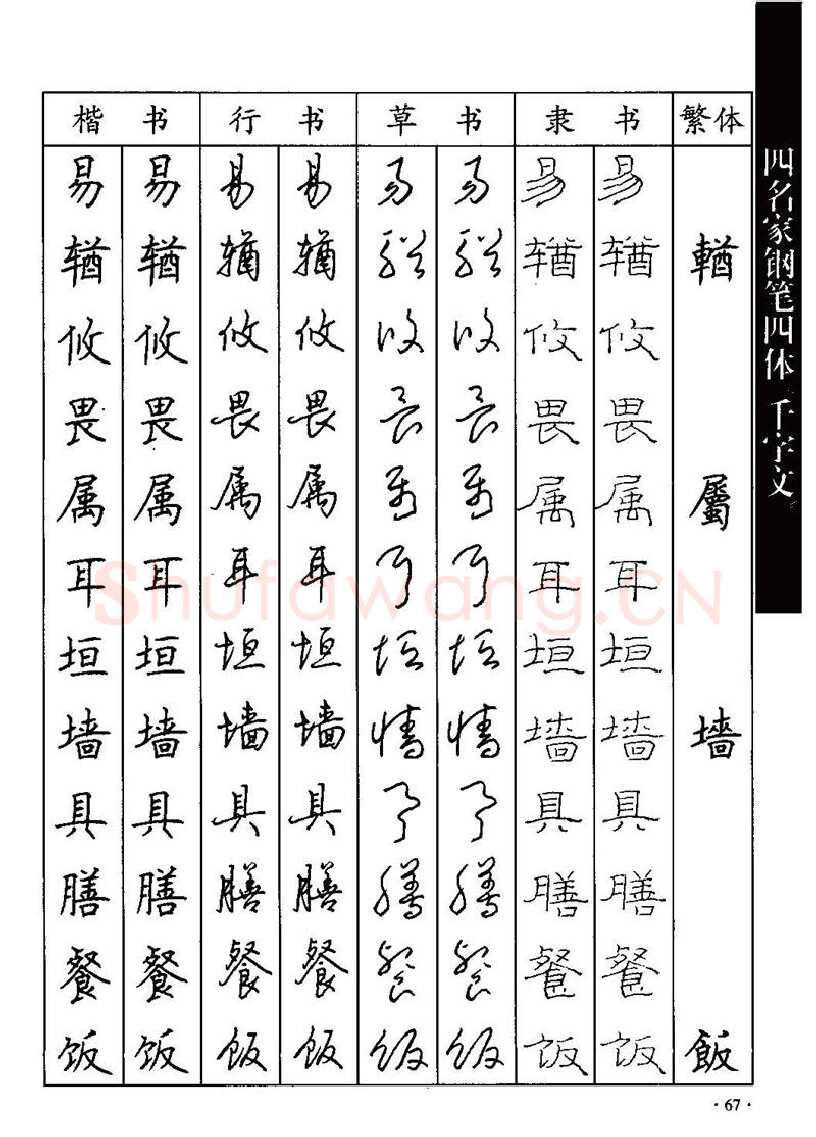 四名家钢笔四体《千字文》
楷书 行书 草书 隶书 繁体
易 易 易 易 易 易 易 易
𬨎 𬨎 𬨎 𬨎 𬨎 𬨎 𬨎 𬨎 輶
攸 攸 攸 攸 攸 攸 攸 攸
畏 畏 畏 畏 畏 畏 畏 畏
属 属 属 属 属 属 属 属 屬
耳 耳 耳 耳 耳 耳 耳 耳
垣 垣 垣 垣 垣 垣 垣 垣
墙 墙 墙 墙 墙 墙 墙 墙 墻
具 具 具 具 具 具 具 具
膳 膳 膳 膳 膳 膳 膳 膳
餐 餐 餐 餐 餐 餐 餐 餐
饭 饭 饭 饭 饭 饭 饭 饭 飯
Shufawang.CN
·67·